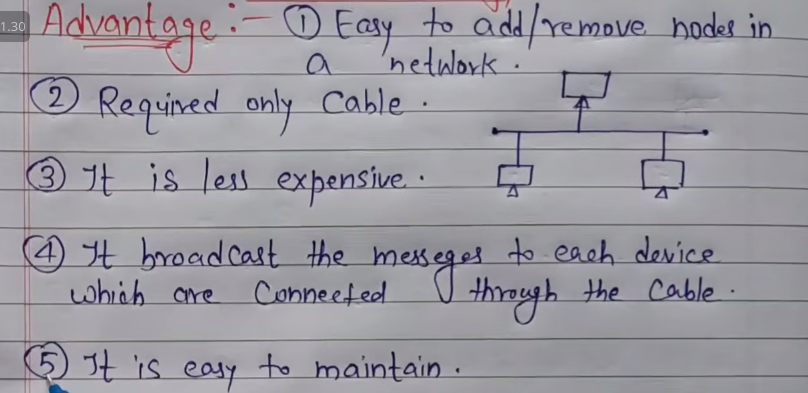 1.30
Advantage :- ① Easy to add/remove nodes in
a network.
② Required only Cable.
③ It is less expensive.
④ It broadcast the messeges to each device
which are Connected through the Cable.
⑤ It is easy to maintain.